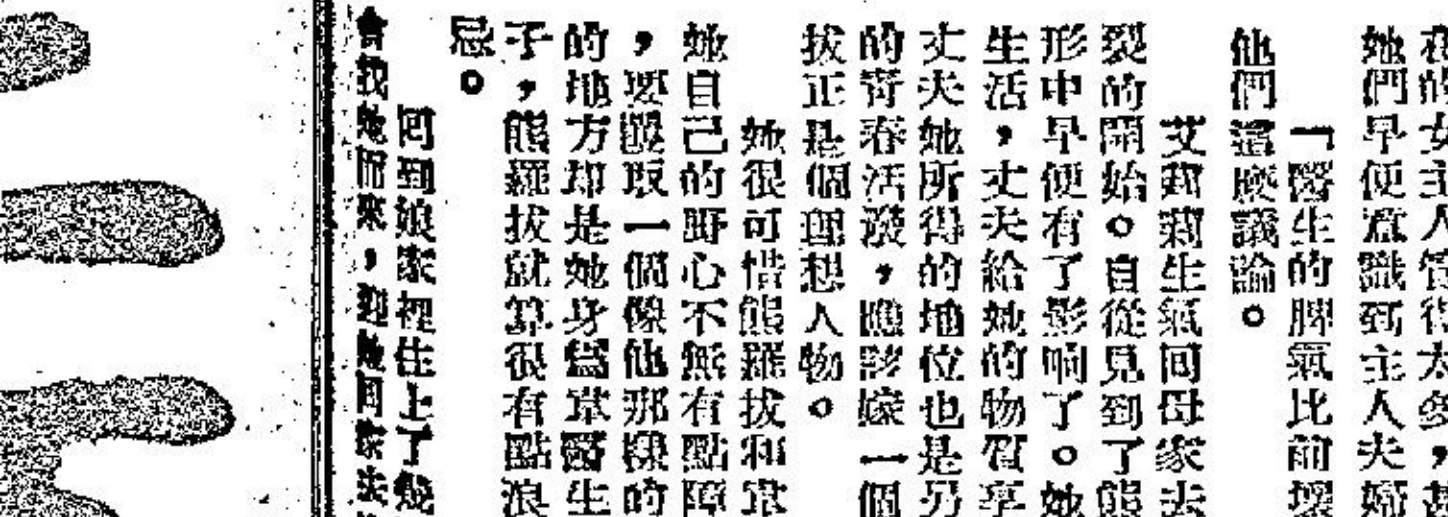 的女主人管得太多，
她們早便意識到主人夫婦
「醫生的脾氣比前壞
他們這麼議論。
艾莉莉生氣回母家去
裂的開始。自從見到了熊
形中早便有了影响了。她
生活，丈夫給她的物質享
丈夫她所得的地位也是另
的青春活潑，應該嫁一個
拔正是個理想人物。
她很可惜熊羅拔和常
她自己的野心不無有點障
，要嚴取一個像他那樣的
的地方却是她身為常醫生
子，熊羅拔就算很有點浪
忌。
回到娘家裡住上了幾
會找她而來，迎她回家去